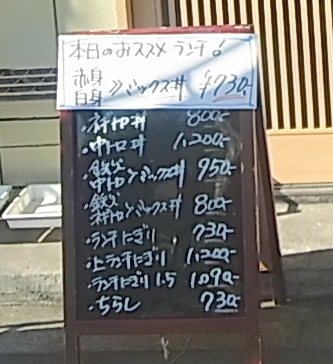 本日のおススメランチ!
赤身
白身 >ミックス丼 ¥730-
・ネギトロ丼 800-
・中トロ丼 1,200-
・鉄火
中トロ >ミックス丼 950-
・鉄火
ネギトロ >ミックス丼 800-
・ランチにぎり 730-
・上ランチにぎり 1,200-
・ランチにぎり1.5 1,090-
・ちらし 730-